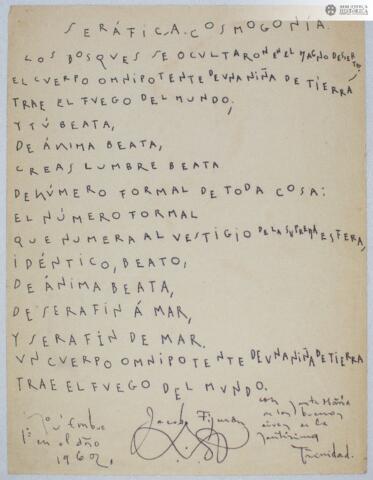 BIBLIOTECA
HISTÓRICA
SERÁFICA COSMOGONÍA.
LOS BOSQUES SE OCULTARON EN EL MAGNO DESIERTO,
EL CUERPO OMNIPOTENTE DE UNA NIÑA DE TIERRA
TRAE EL FUEGO DEL MUNDO;
Y TÚ BEATA,
DE ÁNIMA BEATA,
CREAS LUMBRE BEATA
DE NÚMERO FORMAL DE TODA COSA:
EL NÚMERO FORMAL
QUE NUMERA AL VESTIGIO DE LA SUPREMA ESFERA,
IDÉNTICO, BEATO,
DE ÁNIMA BEATA,
DE SERAFÍN Á MAR,
Y SERAFÍN DE MAR.
UN CUERPO OMNIPOTENTE DE UNA NIÑA DE TIERRA
TRAE EL FUEGO DEL MUNDO.
Noviembre
1º en el año
1960.
Jacobo Fijman
con
en los buenos
Trinidad.